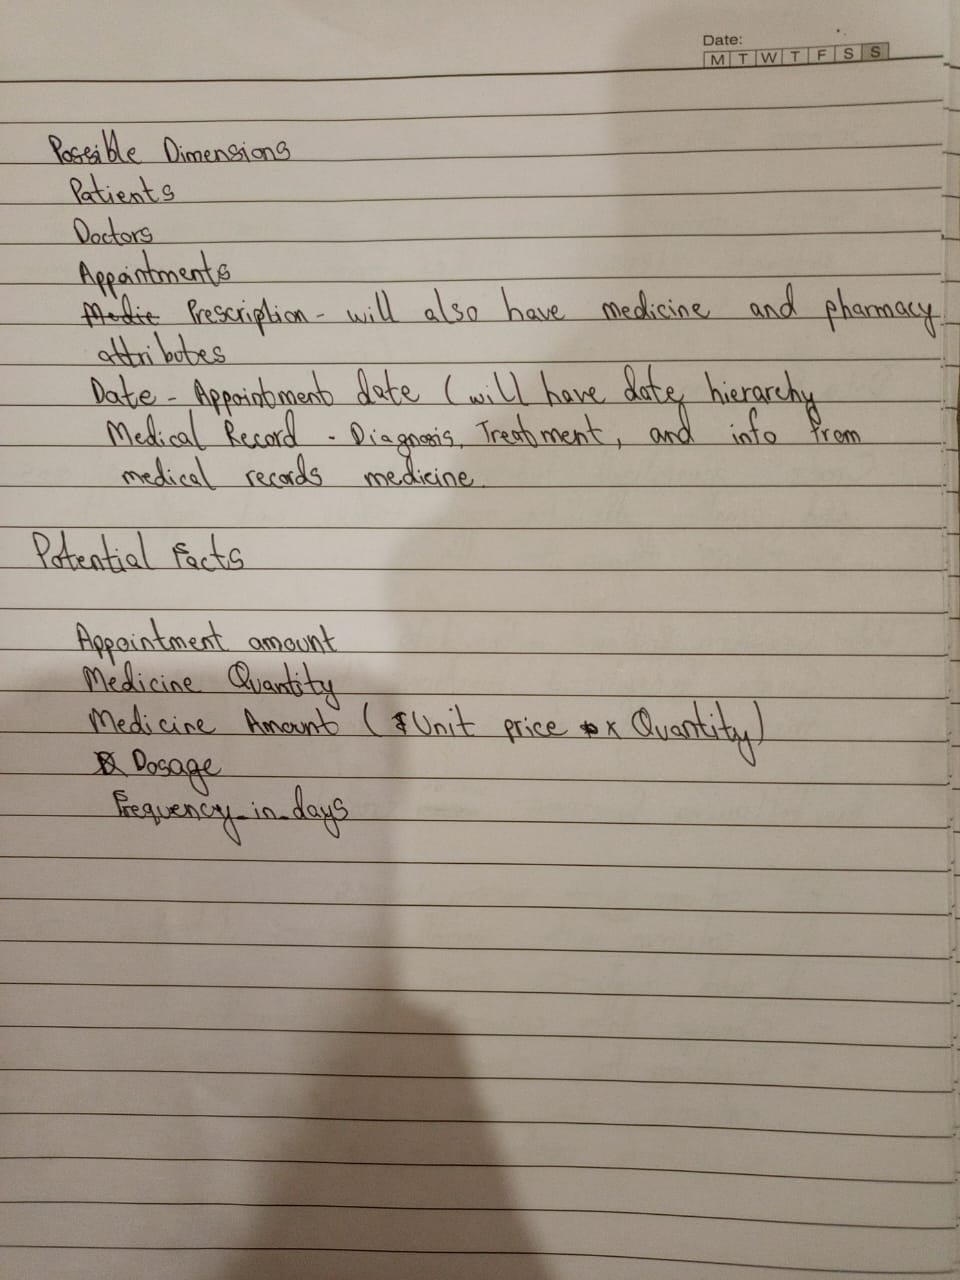 Date:
M T W T F S S
Possible Dimensions
Patients
Doctors
Appointments
Medic Prescription - will also have medicine and pharmacy
attributes
Date - Appointment date (will have date hierarchy
Medical Record - Diagnosis, Treatment, and info from
medical records medicine.
Potential Facts
Appointment amount
Medicine Quantity
Medicine Amount (Unit price x Quantity)
Dosage
Frequency_in_days